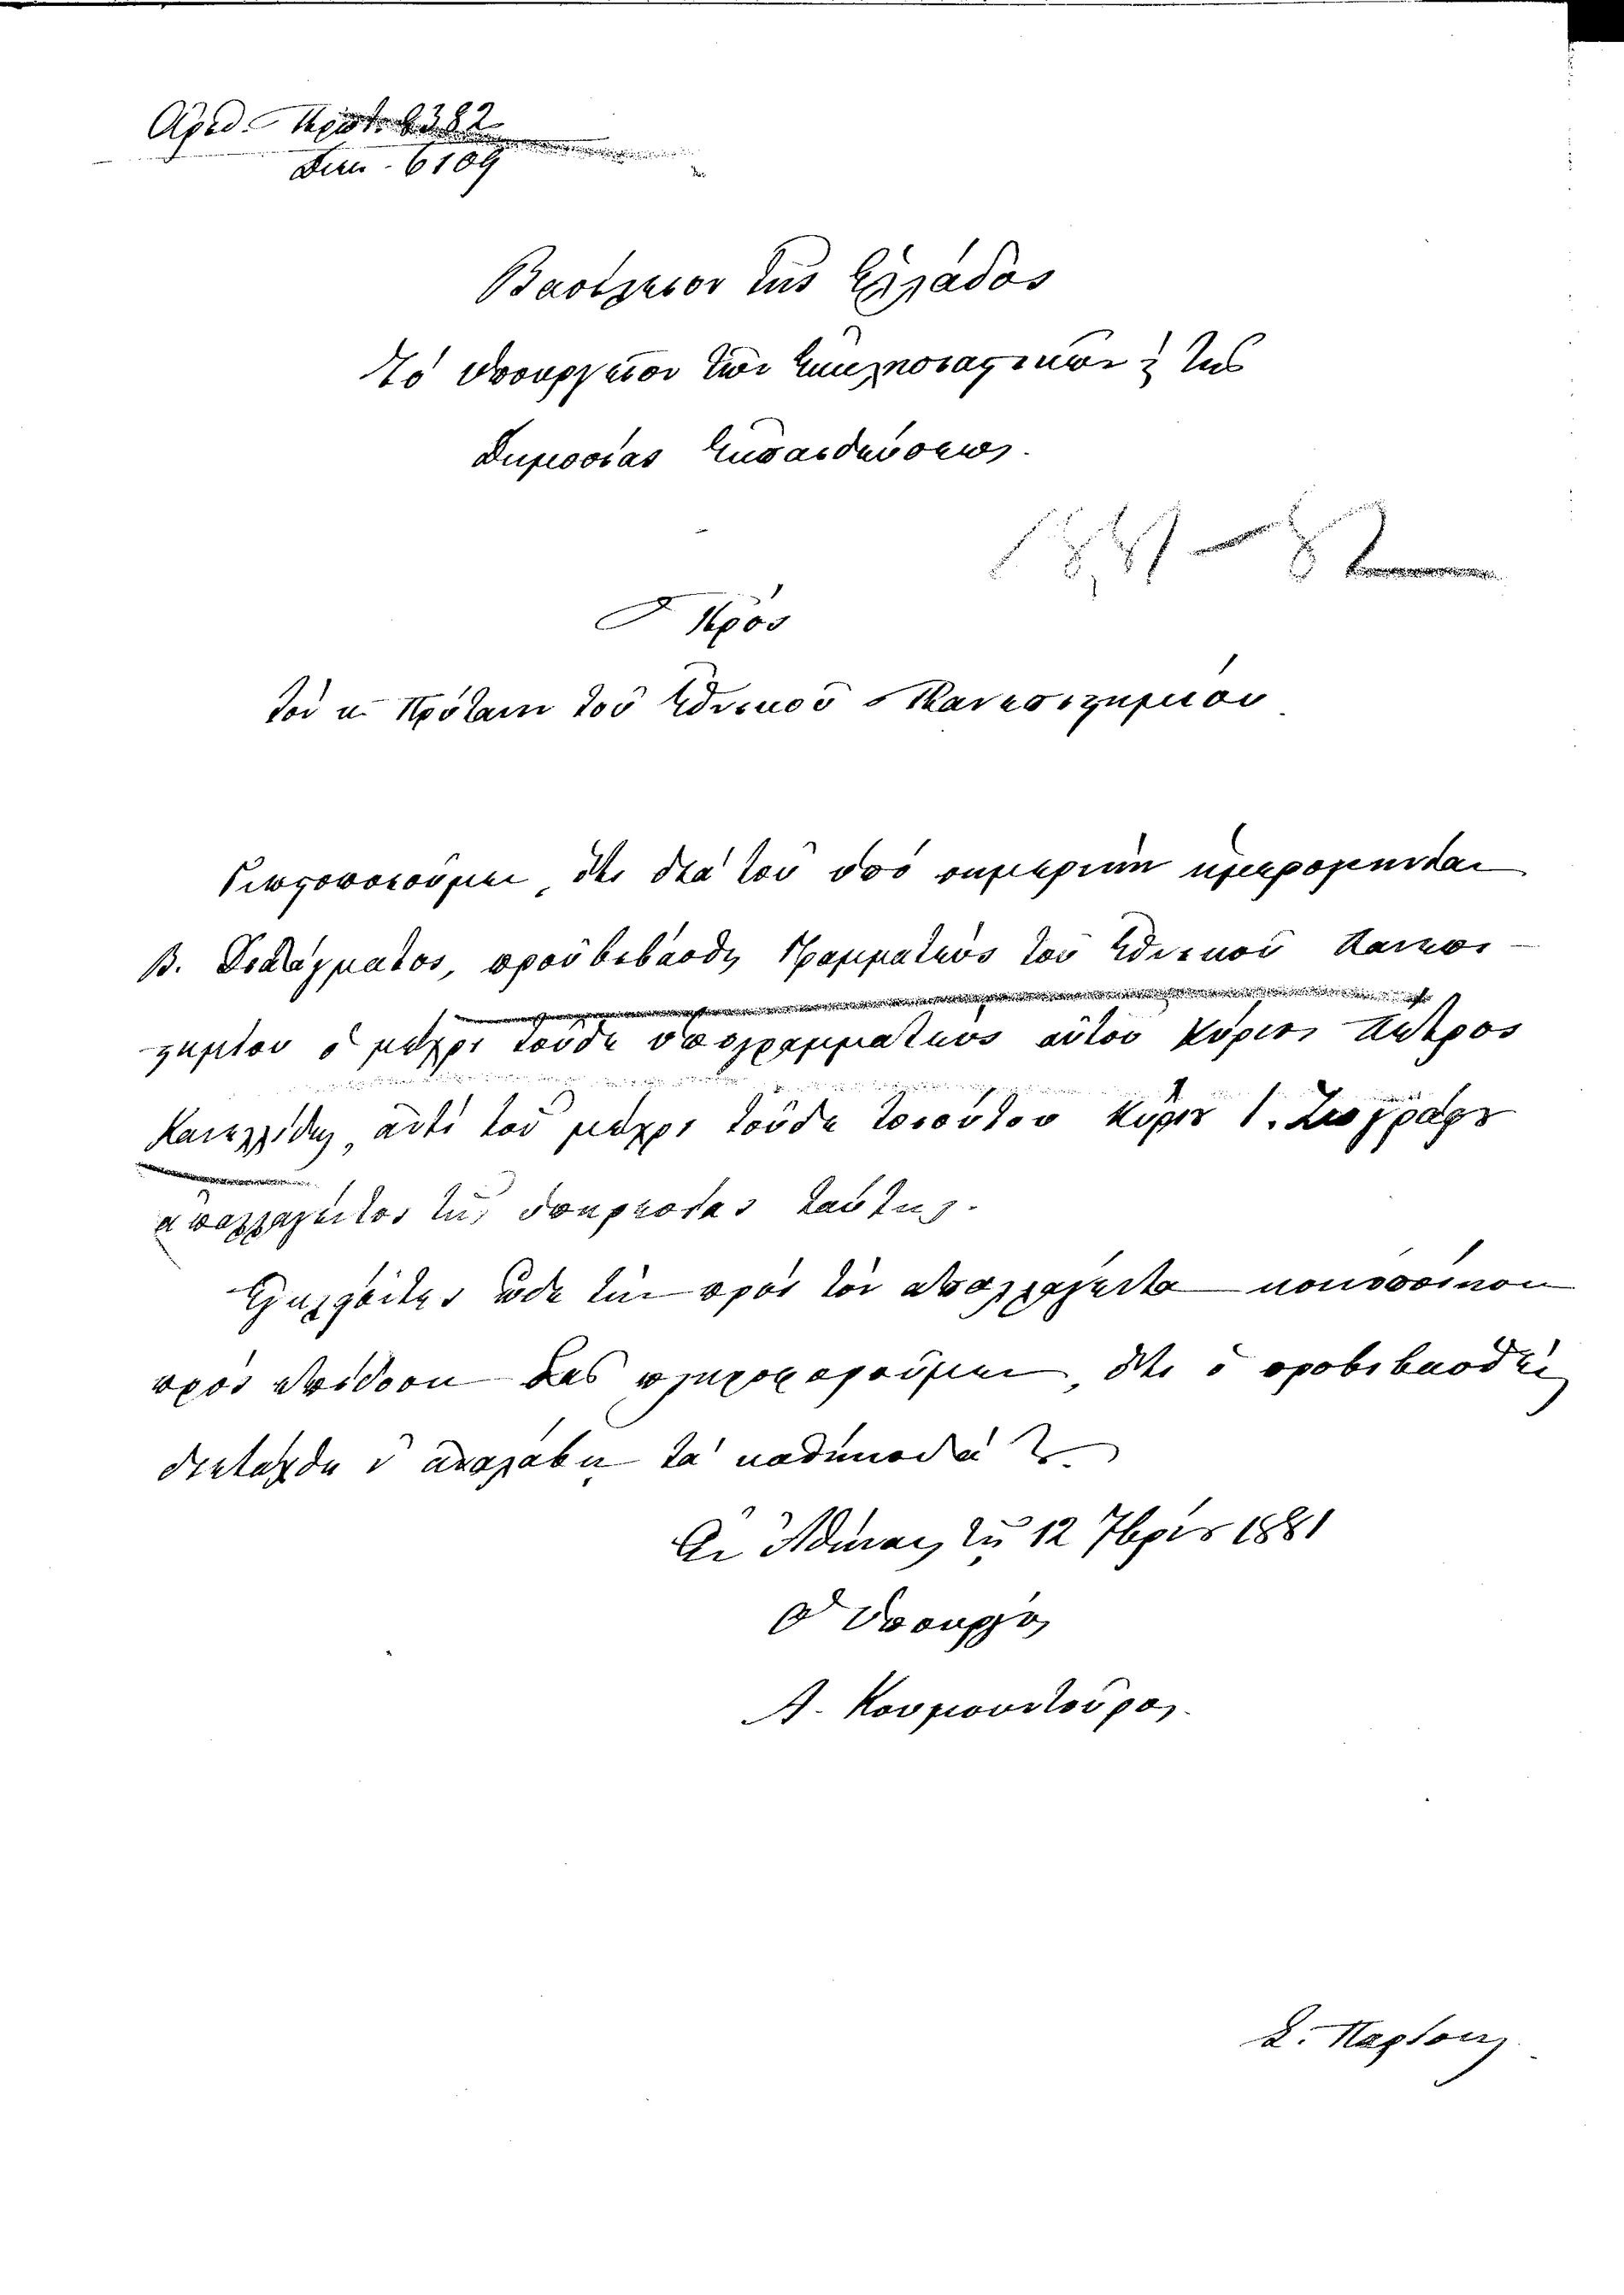 Ἀριθ. Πρωτ. 8382
Διεκ. 6109
Βασίλειον τῆς Ἑλλάδος
Τὸ Ὑπουργεῖον τῶν Ἐκκλησιαστικῶν & τῆς
Δημοσίας Ἐκπαιδεύσεως.
1881-82
Πρὸς
τὸν κ. Πρύτανιν τοῦ Ἐθνικοῦ Πανεπιστημίου
Γνωστοποιοῦμεν, ὅτι διὰ τοῦ ὑπὸ σημερινὴν ἡμερομηνίαν
Β. Διατάγματος, προὐβιβάσθη Γραμματεὺς τοῦ Ἐθνικοῦ Πανεπι-
στημίου ὁ μέχρι τοῦδε ὑπογραμματεὺς αὐτοῦ Κύριος Πέτρος
Κανελλίδης, ἀντὶ τοῦ μέχρι τοῦδε τοιούτου Κυρίου Ι. Ζωγράφου
ἀπαλλαγέντος τῆς ὑπηρεσίας ταύτης.
Ἐγκλείοντες ὧδε τὴν πρὸς τὸν ἀπαλλαγέντα κοινοποίησιν
πρὸς ἐπίδοσιν Σᾶς πληροφοροῦμεν, ὅτι ὁ προβιβασθεὶς
διετάχθη ν' ἀναλάβῃ τὰ καθήκοντά του
Ἐν Ἀθήναις τῇ 12 7βρίου 1881
Ὁ Ὑπουργὸς
Α. Κουμουνδοῦρος.